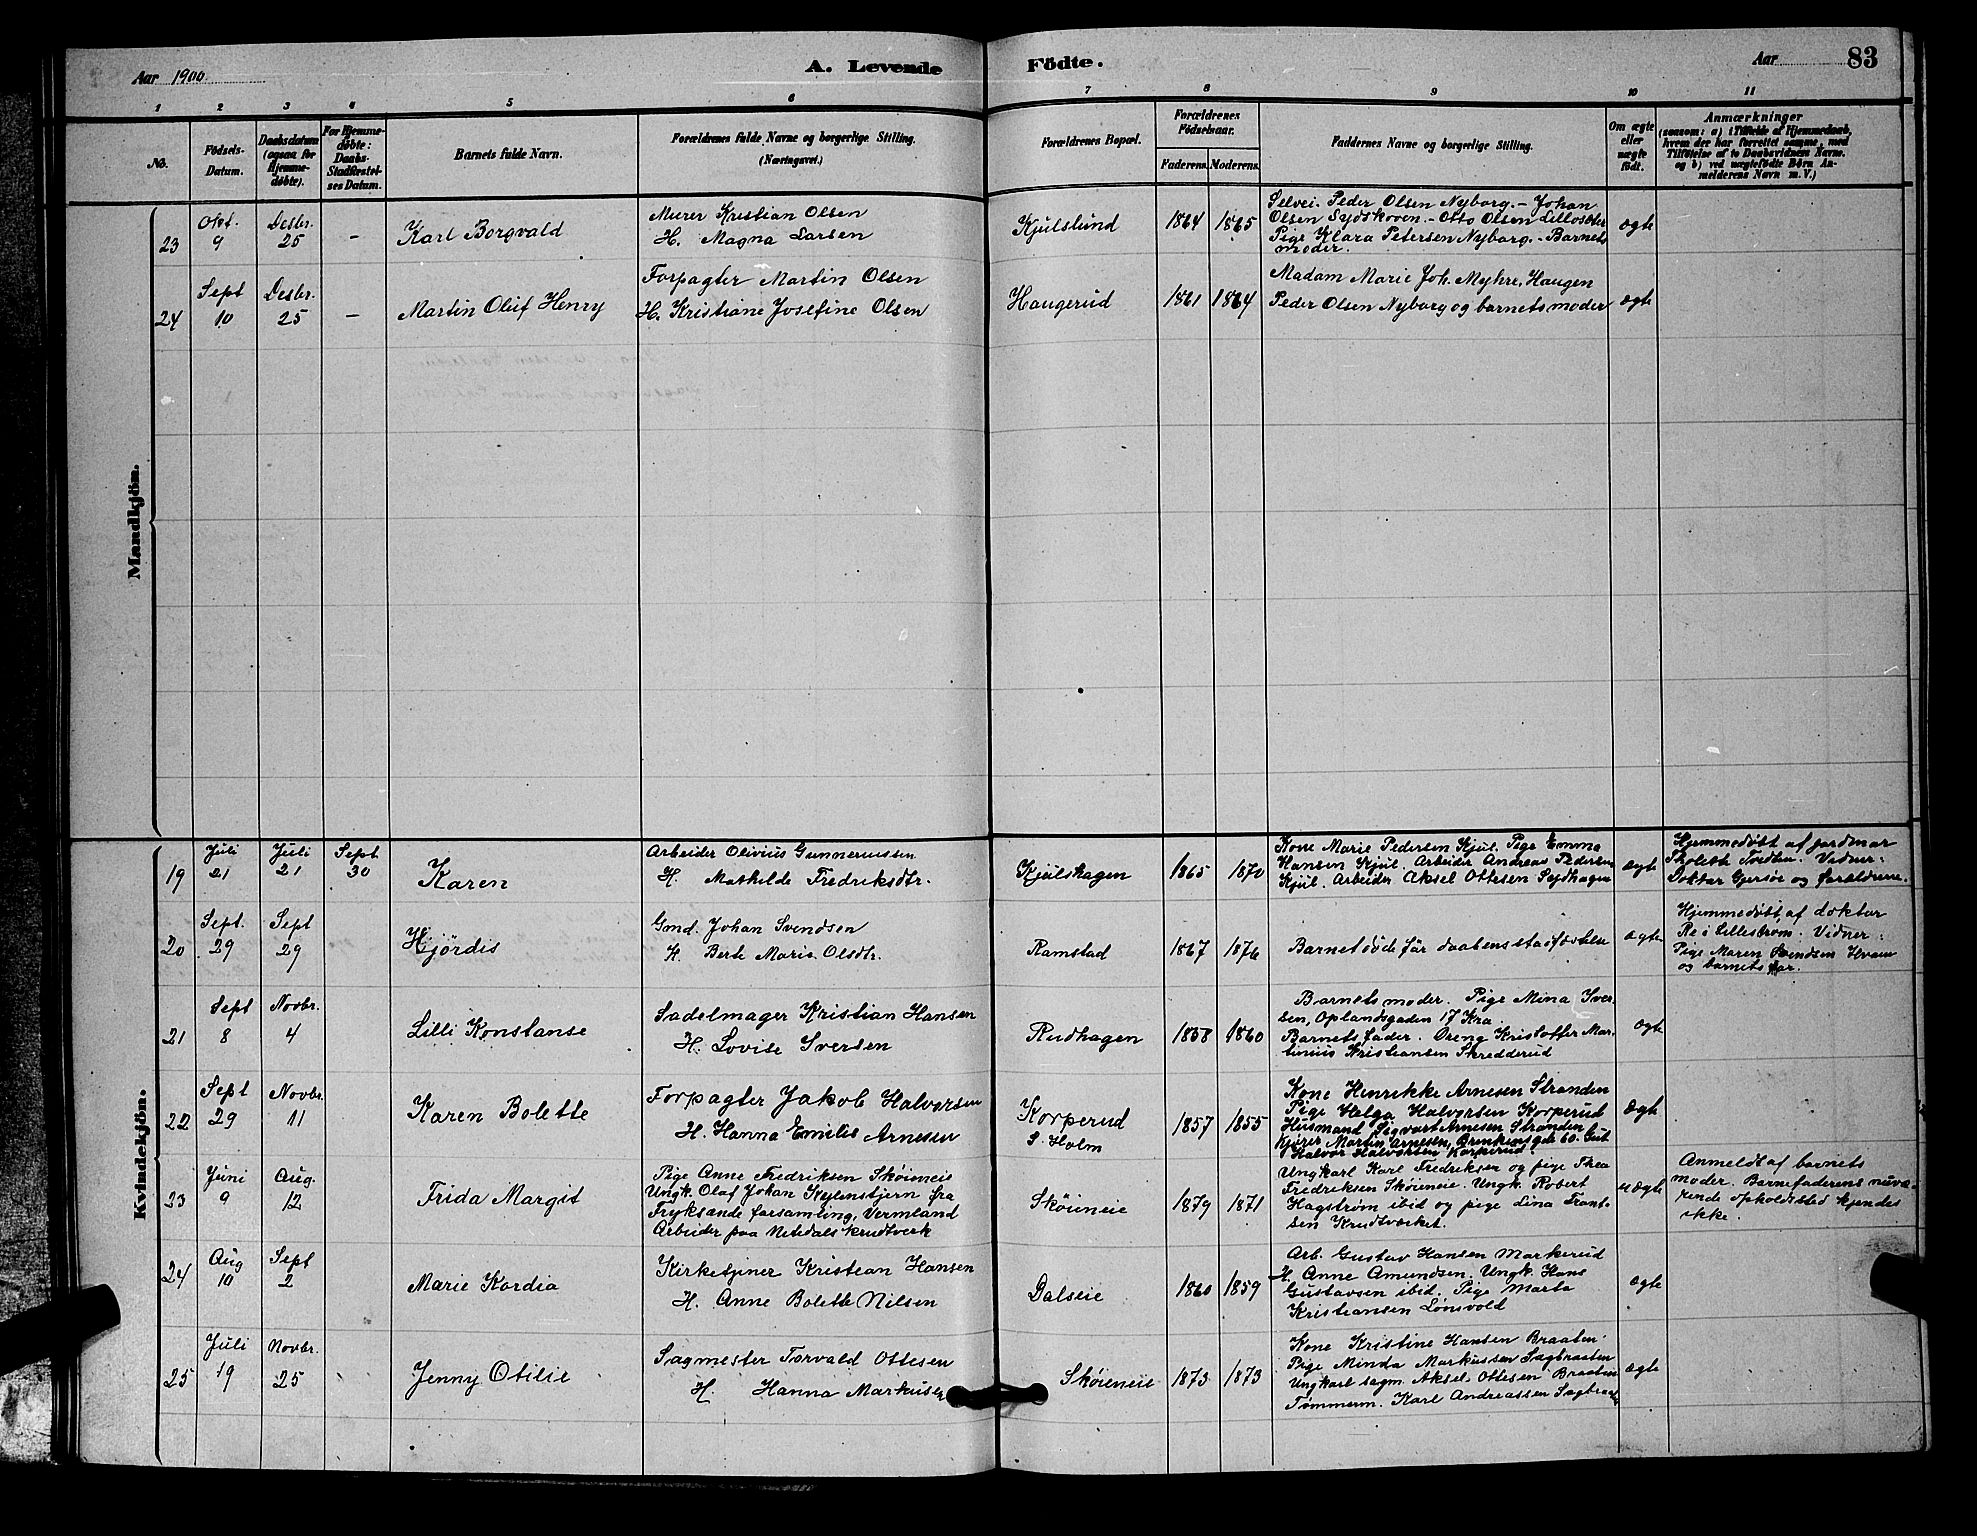 Aar 1900
A. Levende Födte.
Aar 83
1 2 3 4 5 6 7 8 9 10 11
No.
Födsels-
Datum.
Daabsdatum
(ogsaa for
Hjemme-
döbte).
For Hjemme-
döbte:
Daabs-
Stadfæstel-
ses Datum.
Barnets fulde Navn.
Forældrenes fulde Navne og borgerlige Stilling.
(Næringsvei.)
Forældrenes Bopæl.
Forældrenes
Födselsaar.
Faderens. Moderens.
Faddernes Navne og borgerlige Stilling.
Om ægte
eller
uægte
födt.
Anmærkninger
(saasom: a) i Tilfælde af Hjemmedaab,
hvem der har forrettet samme, med
Tilföielse af to Daabsvidners Navne.
og b) ved uægtefödte Börn An-
melderens Navn m. V.)
Mandkjön.
23
Okt.
9
Desbr.
25
-
Karl Borgvald
Murer Kristian Olsen
H. Magna Larsen
Kjulslund
1864 1865
Selvei. Peder Olsen Nyborg. - Johan
Olsen Sydskoven. - Otto Olsen Lilloseter
Pige Klara Petersen Nyborg. - Barnets
moder.
ægte
24
Sept
10
Desbr.
25
-
Martin Oluf Henry
Forpagter Martin Olsen
H. Kristiane Josefine Olsen
Haugerud
1861 1864
Madam Marie Joh. Myhre, Haugen
Peder Olsen Nyborg og barnets moder
ægte
Kvindekjön.
19
Juli
21
Juli
21
Sept.
30
Karen
Arbeider Olivius Gunneriussen
H. Mathilde Fredriksdtr.
Kjulshagen
1865 1870
Kone Marie Pedersen Kjul. Pige Emma
Hansen Kjul. Arbeider Andreas Pedersen
Kjul. Arbeider Aksel Ottesen Sydhagen
ægte
Hjemmedøbt af jordmor
Vidner:
Doktor Gjersøe og forældrene.
20
Sept.
29
Sept
29
Hjördis
Gmd. Johan Svendsen
H. Berte Marie Olsdtr.
Ramstad
1867 1876
Barnet døde før daabens stadfæstelse
ægte
Hjemmedøbt af doktor
Re i Lillestrøm. Vidner:
Pige Maren Svendsen Hvam
og barnets far.
21
Sept
8
Novbr.
4
Lilli Konstanse
Sadelmager Kristian Hansen
H. Lovise Iversen
Rudhagen
1858 1860
Barnets moder. Pige Mina Iver-
sen, Oplandsgaden 17 Kra.
Barnets fader. Dreng Kristoffer Mar-
tinius Kristiansen Skredderud
ægte
22
Sept
29
Novbr.
11
Karen Bolette
Forpagter Jakob Halvorsen
H. Hanna Emilie Arnesen
Korperud
S. Holm
1857 1855
Kone Henrikke Arnesen Stranden
Pige Helga Halvorsen Korperud
Husmand Sigvart Arnesen Stranden
Kjører Martin Arnesen, Brinkens gde 60. Gut
Halvor Halvorsen Korperud.
Ægte
23
Juni
9
Aug.
12
Frida Margit
Pige Anne Fredriksen Skøieneie
Ungk. Olaf Johan Kylenstjern fra
Fryksände forsamling, Vermland
Arbeider paa Nitedals krudtverk
Skøieneie
1879 1871
Ungkarl Karl Fredriksen og pige Thea
Fredriksen Skøieneie. Ungk. Robert
Hagstrøm ibid og pige Lina Frant-
sen Krudtværket.
uægte
Anmeldt af barnets
moder. Barnefaderens nuvæ-
rende opholdssted kjendes
ikke.
24
Aug
10
Sept
2
Marie Kordia
Kirketjener Kristian Hansen
H. Anne Bolette Nilsen
Dalseie
1860 1859
Arb. Gustav Hansen Markerud
H. Anne Amundsen. Ungk. Hans
Gustavsen ibid. Pige Marta
Kristiansen Lønsvold
ægte
25
Juli
19
Novbr.
25
Jenny Otilie
Sagmester Torvald Ottesen
H. Hanna Markusen
Skøieneie
1873 1873
Kone Kristine Hansen Braaten.
Pige Minda Markussen Sagbraaten
Ungkarl sagm. Aksel Ottesen Braaten
Tømmerm. Karl Andreassen Sagbraaten
ægte